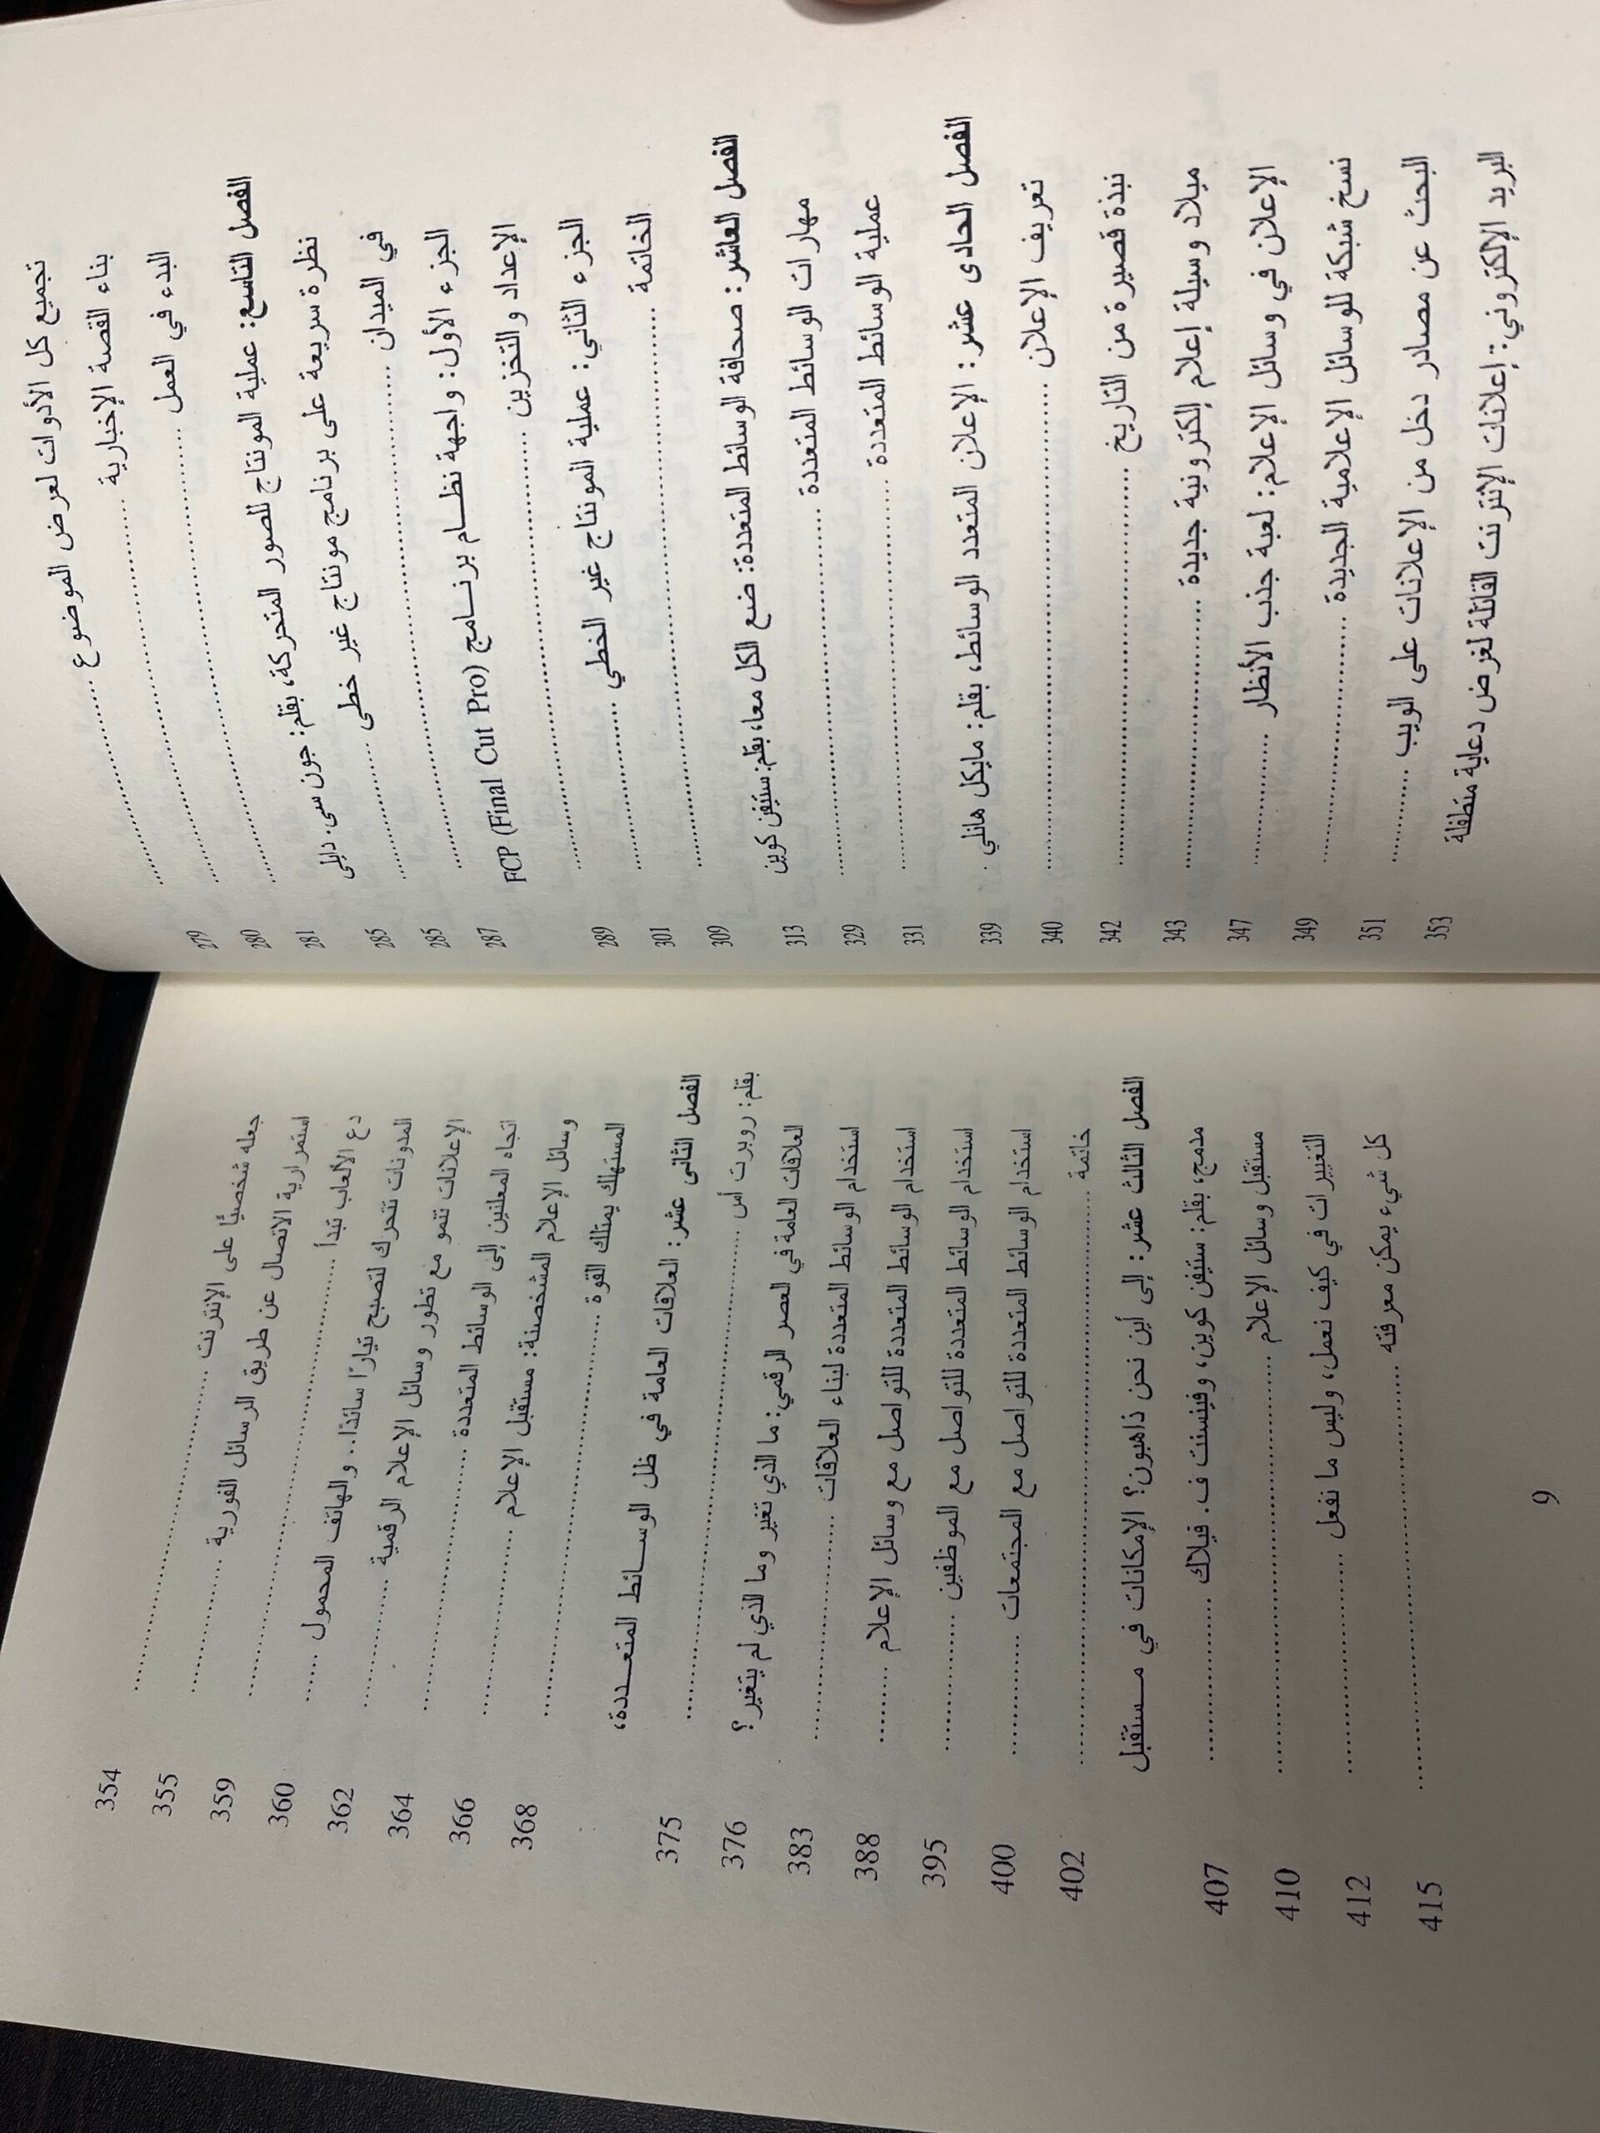 تجميع كل الأدوات لعرض الموضوع ........ 279
بناء القصة الإخبارية ........ 280
البدء في العمل ........ 281
الفصل التاسع: عملية المونتاج للصور المتحركة، بقلم: جون سى. دايلى 285
نظرة سريعة على برنامج مونتاج غير خطي ........ 285
في الميدان ........ 287
الجزء الأول: واجهة نظام برنامج FCP (Final Cut Pro)
الإعداد والتخزين ........ 289
الجزء الثاني: عملية المونتاج غير الخطي ........ 301
الخاتمة ........ 309
الفصل العاشر: صحافة الوسائط المتعددة: ضع الكل معا، بقلم: ستيفن كوين 313
مهارات الوسائط المتعددة ........ 329
عملية الوسائط المتعددة ........ 331
الفصل الحادى عشر: الإعلان المتعدد الوسائط، بقلم: مايكل هانلي . 339
تعريف الإعلان ........ 340
نبذة قصيرة من التاريخ ........ 342
ميلاد وسيلة إعلام إلكترونية جديدة ........ 343
الإعلان في وسائل الإعلام: لعبة جذب الأنظار ........ 347
نسخ شبكة للوسائل الإعلامية الجديدة ........ 349
البحث عن مصادر دخل من الإعلانات على الويب ........ 351
البريد الإلكتروني: إعلانات الإنترنت القاتلة لغرض دعاية متطفلة 353
جعله شخصيًا على الإنترنت ........ 354
استمرارية الاتصال عن طريق الرسائل الفورية ........ 355
دع الألعاب تبدأ ........ 359
المدونات تتحرك لتصبح تيارًا سائدًا.. والهاتف المحمول ...... 360
الإعلانات تنمو مع تطور وسائل الإعلام الرقمية ........ 362
اتجاه المعلنين إلى الوسائط المتعددة ........ 364
وسائل الإعلام المشخصنة: مستقبل الإعلام ........ 366
المستهلك يمتلك القوة ........ 368
الفصل الثانى عشر: العلاقات العامة في ظل الوسائط المتعددة،
بقلم: روبرت أس ........ 375
العلاقات العامة في العصر الرقمي: ما الذي تغير وما الذي لم يتغير؟ 376
استخدام الوسائط المتعددة لبناء العلاقات ........ 383
استخدام الوسائط المتعددة للتواصل مع وسائل الإعلام ........ 388
استخدام الوسائط المتعددة للتواصل مع الموظفين ........ 395
استخدام الوسائط المتعددة للتواصل مع المجتمعات ........ 400
خاتمة ........ 402
الفصل الثالث عشر: إلى أين نحن ذاهبون؟ الإمكانات في مستقبل
مدمج، بقلم: ستيفن كوين، وفينسنت ف. فيلاك ........ 407
مستقبل وسائل الإعلام ........ 410
التغييرات في كيف نعمل، وليس ما نفعل ........ 412
كل شيء يمكن معرفته ........ 415
9